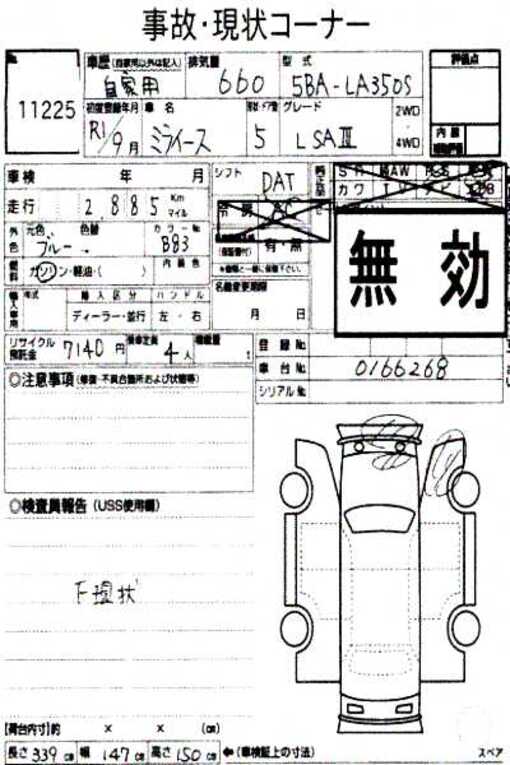 事故・現状コーナー
No.
11225
車歴(自家用以外は記入)
自家用
排気量
660
型式
5BA-LA350S
評価点
初度登録年月
R1/9月
車名
ミライース
5
グレード
LSAⅢ
2WD
4WD
内装
車検 年 月
シフト
DAT
走行
2,885
Km
マイル
外色
元色
色替
ブルー
カラーNo.
B83
有・無
燃料
ガソリン・軽油・( )
内装色
名義変更期限
月 日
無効
年式
輸入区分
ハンドル
ディーラー・並行
左・右
リサイクル預託金
7140円
乗車定員
4人
積載量
t
登録No.
車台No.
0166268
シリアルNo.
◎注意事項(修復・不具合箇所および状態等)
◎検査員報告(USS使用欄)
下現状
[荷台内寸]約 × × (cm)
長さ339cm 幅147cm 高さ150cm ←(車検証上の寸法)
スペア